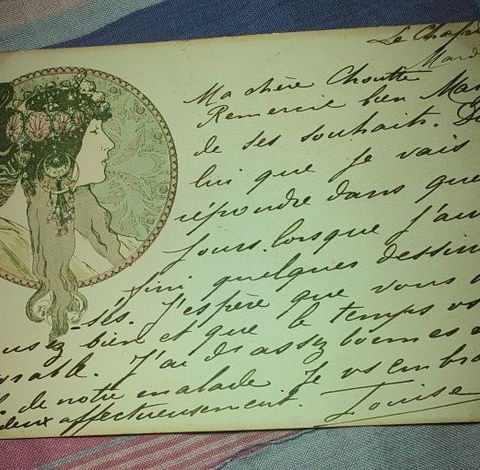 Le Chap
Mard
Ma chère Choutte
Remercie bien Ma
de ses souhaits. Di
lui que je vais
répondre dans que
jours. lorsque j'au
fini quelques dessin
és. J'espère que vous
usez bien et que le temps vs
orable. J'ai di assez bonnes
de notre malade Je vs embra
deux affectueusement. Louise